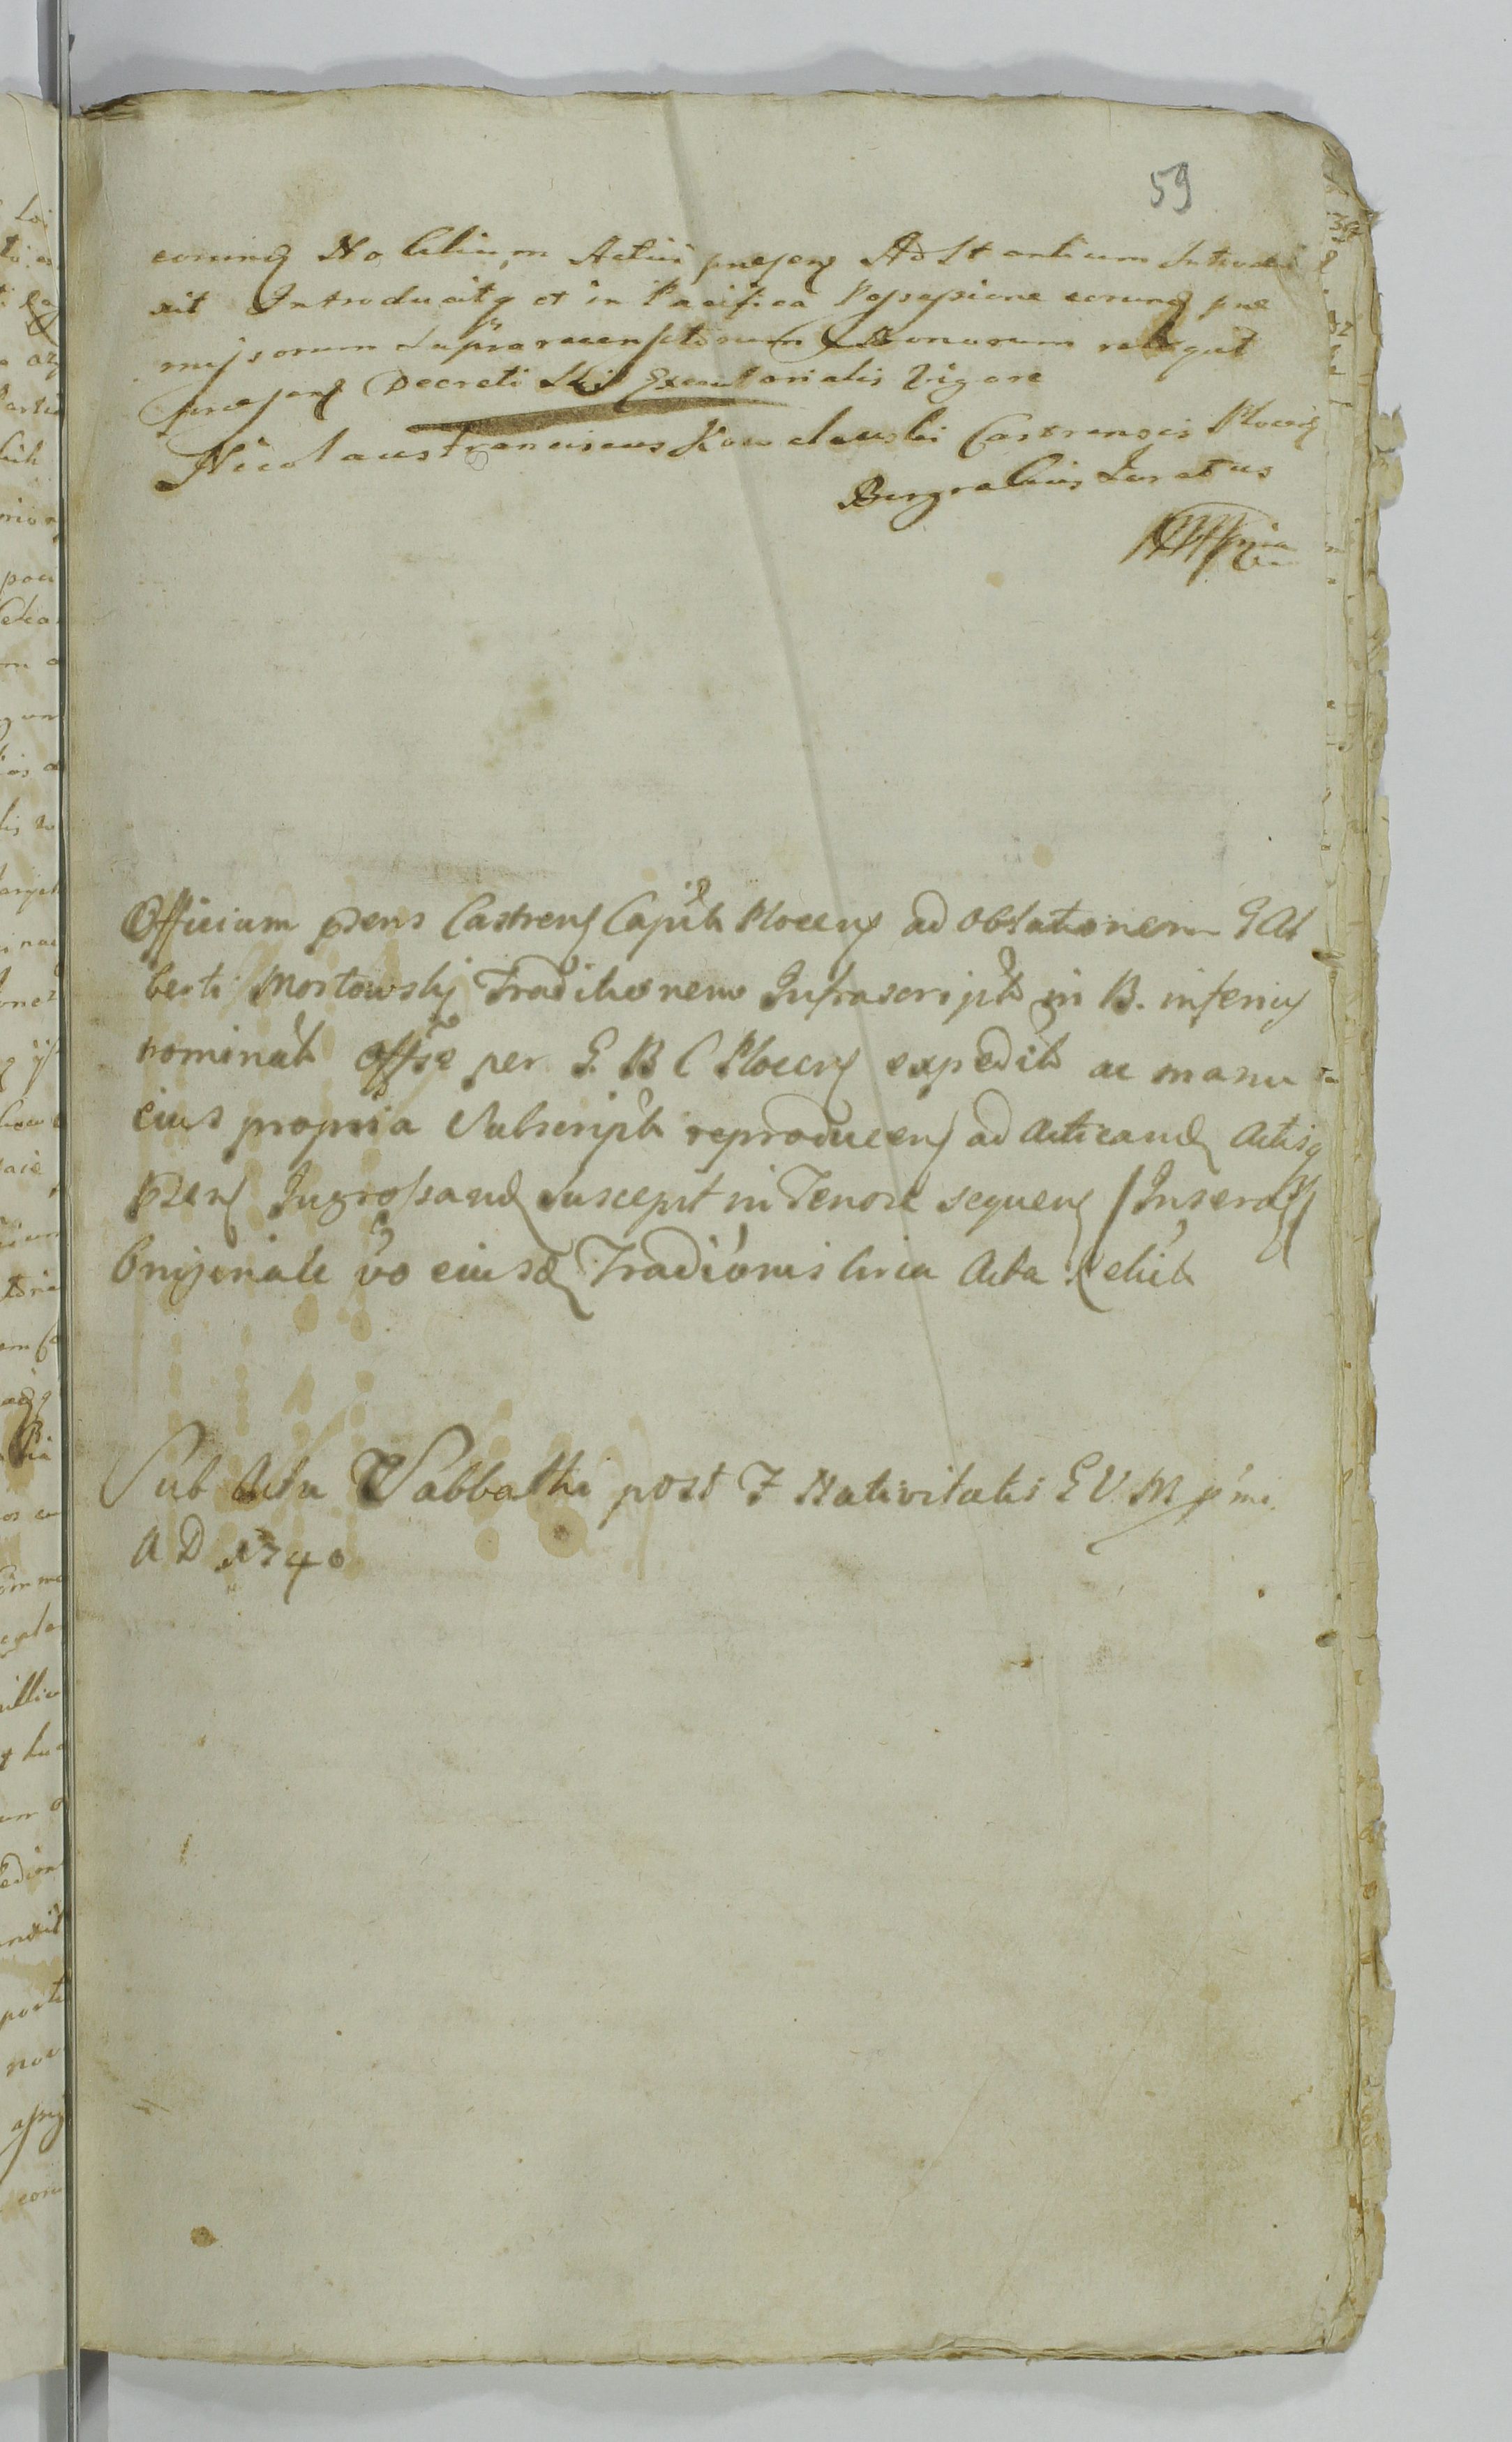 59
eorundq Nobilium Actui presenq Adstantium Introdu
xit Introducitq et in Pacifica Possessione eorundq prae
missorum supra recensitorum Bonorum relinquit
presenq Decreti Executorialis Vigore
Nicolaus Franciscus Kowalewski Castrensis Plocenq
Burgrabius Juratus
mpria
Officium prens Castrenq Capitl Plocenq ad oblationem G Al
berti Mostowskj Traditionem Infrascript in B. inferiq
nominat offse per G. B C Plocenq expedit ac manu
eius propria Subscript reproducenq ad Acticandq Actisq
prenq Ingrossandq suscepit in Tenore sequenq / Inseratq /
Originale vo eiusdq Tradionis circa Acta Relict
Sub Actu Sabbathi post F Nativitatis B V M pmi
A D 1740